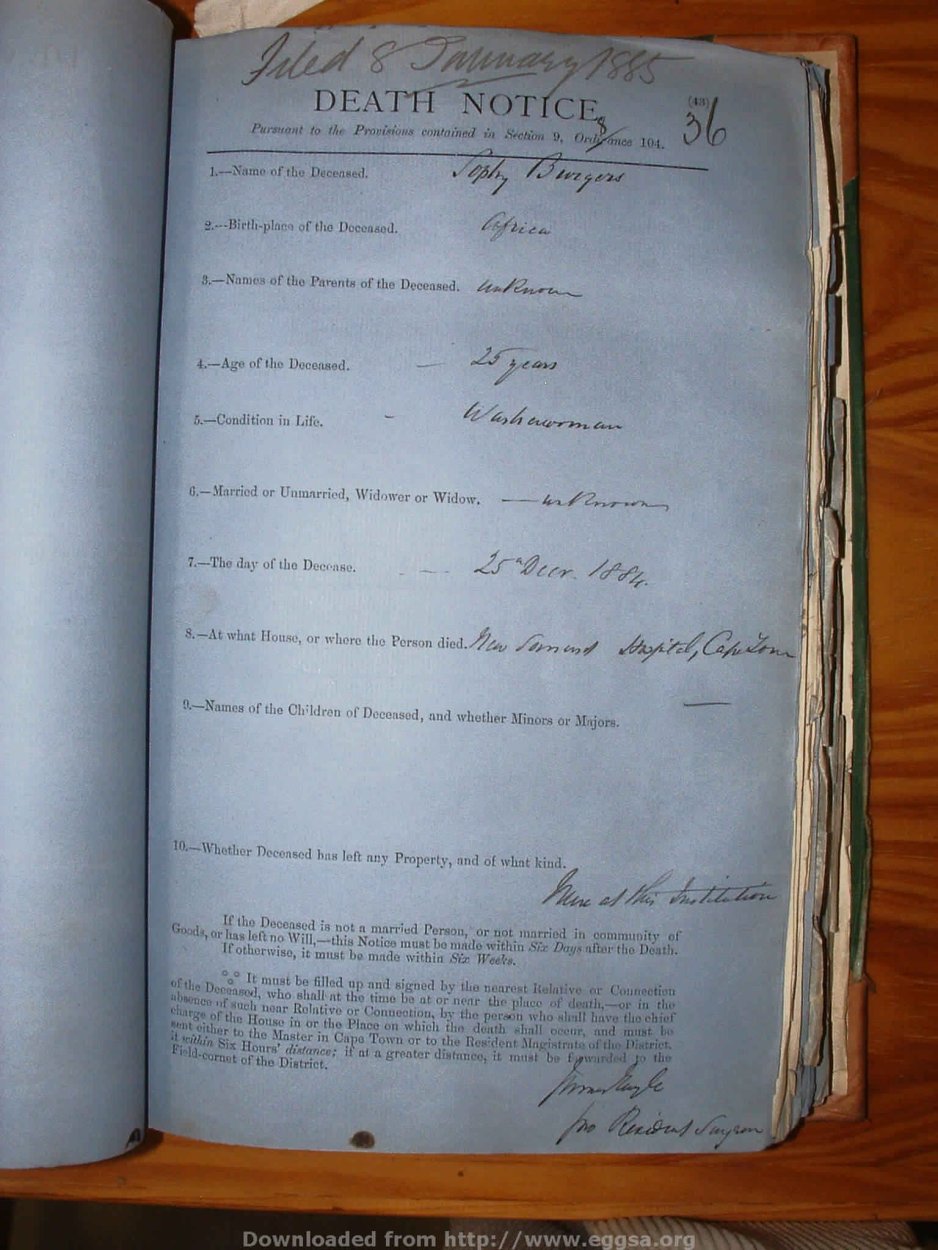 Filed 8 January 1885
DEATH NOTICE,
(43)
36
Pursuant to the Provisions contained in Section 9, Ordinance 104.
1.—Name of the Deceased. Sophy Burgers
2.—Birth-place of the Deceased. Africa
3.—Names of the Parents of the Deceased. unknown
4.—Age of the Deceased. — 25 years
5.—Condition in Life. - Washerwoman
6.—Married or Unmarried, Widower or Widow. — unknown
7.—The day of the Decease. - — 25th Decr. 1884.
8.—At what House, or where the Person died. New Somerset Hospital, Cape Town
9.—Names of the Children of Deceased, and whether Minors or Majors. —
10.—Whether Deceased has left any Property, and of what kind.
None at this Institution
If the Deceased is not a married Person, or not married in community of
Goods, or has left no Will,—this Notice must be made within Six Days after the Death.
If otherwise, it must be made within Six Weeks.
It must be filled up and signed by the nearest Relative or Connection
of the Deceased, who shall at the time be at or near the place of death,—or in the
absence of such near Relative or Connection, by the person who shall have the chief
charge of the House in or the Place on which the death shall occur, and must be
sent either to the Master in Cape Town or to the Resident Magistrate of the District,
if within Six Hours' distance; if at a greater distance, it must be forwarded to the
Field-cornet of the District.
pro Resident Surgeon
Downloaded from http://www.eggsa.org